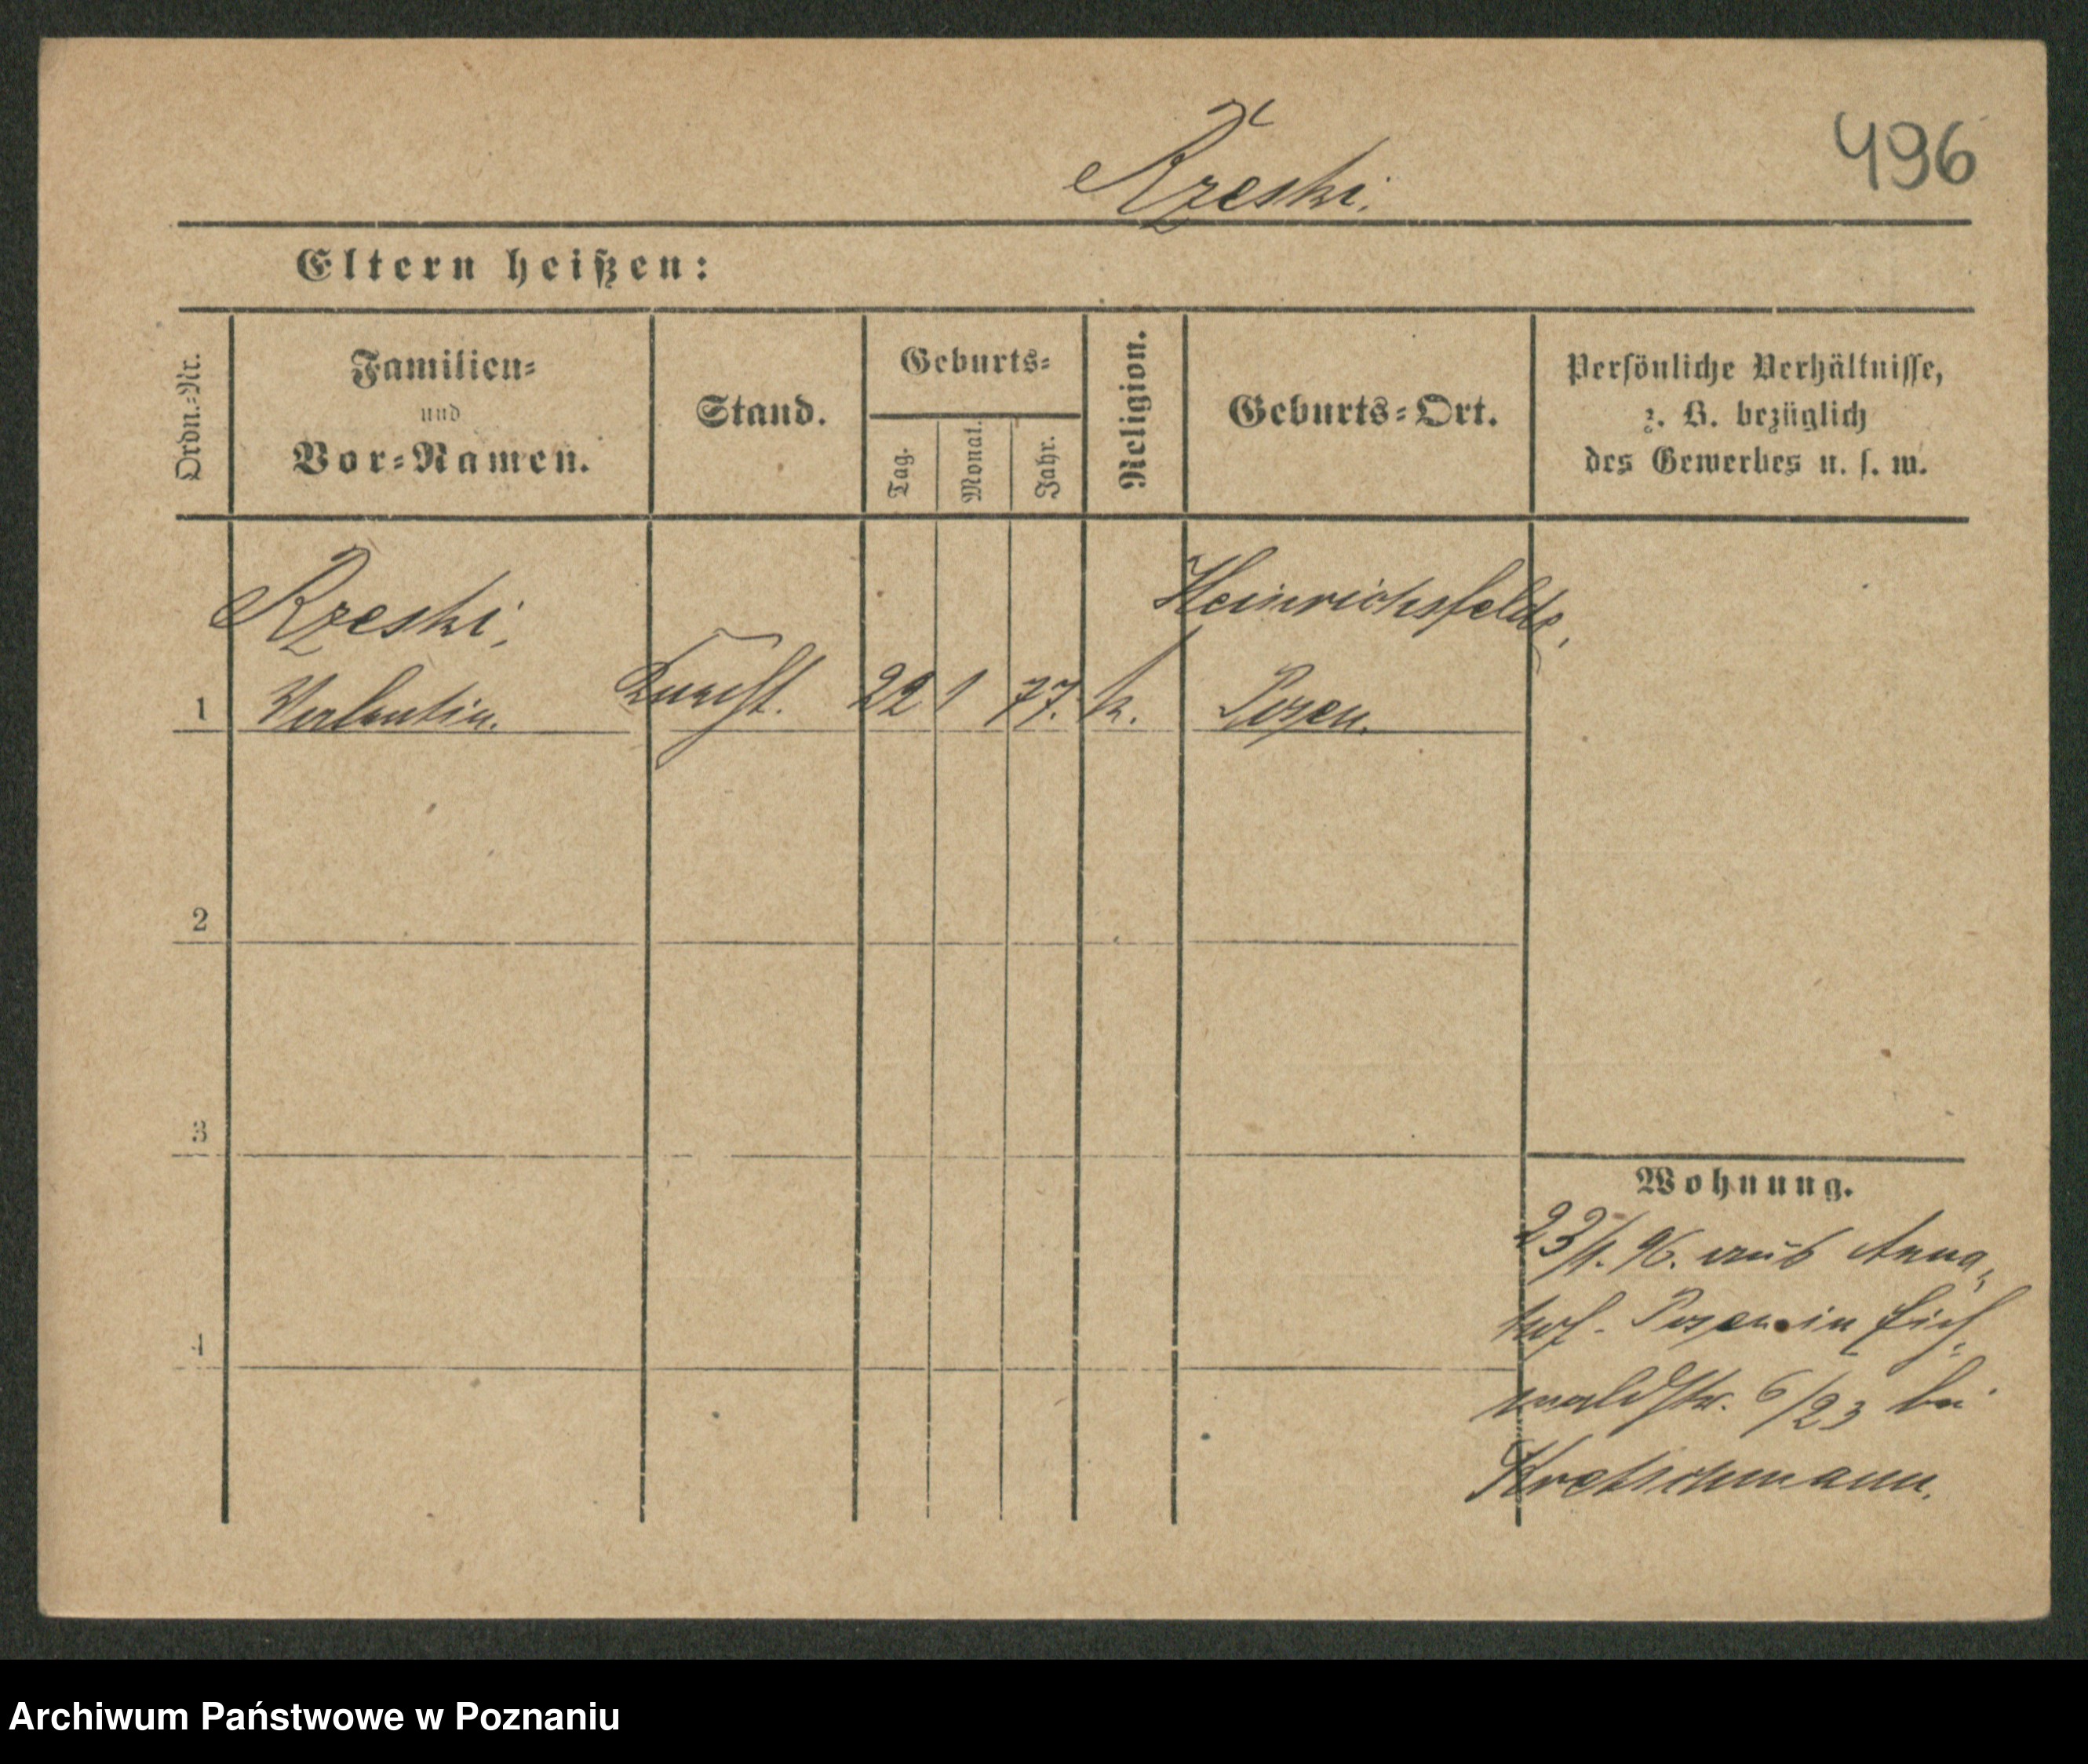 496
Rzeski.
Eltern heißen:
Ordn.-Nr.
Familien-
und
Vor-Namen.
Stand.
Geburts-
Tag.
Monat.
Jahr.
Religion.
Geburts-Ort.
Persönliche Verhältnisse,
z. B. bezüglich
des Gewerbes u. s. w.
Rzeski,
Heinrichsfelde,
1 Valentin. Knecht. 22 1 77. k. Posen.
2
3
4
Wohnung.
23/1. 96. aus Anna-
hof - Posen in Eich-
waldstr. 6/23 bei
Kretschmann.
Archiwum Państwowe w Poznaniu